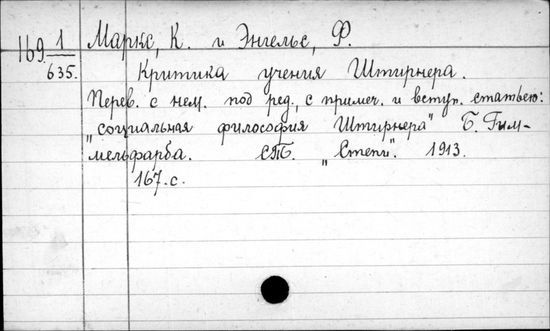 169 1/635. Маркс, К. и Энгельс, Ф.
Критика учения Штирнера.
Перев. с нем. под ред., с примеч. и вступ. статьею:
„социальная философия Штирнера" Б. Гим-
мельфарба. СПБ. „Степь". 1913.
167. с.